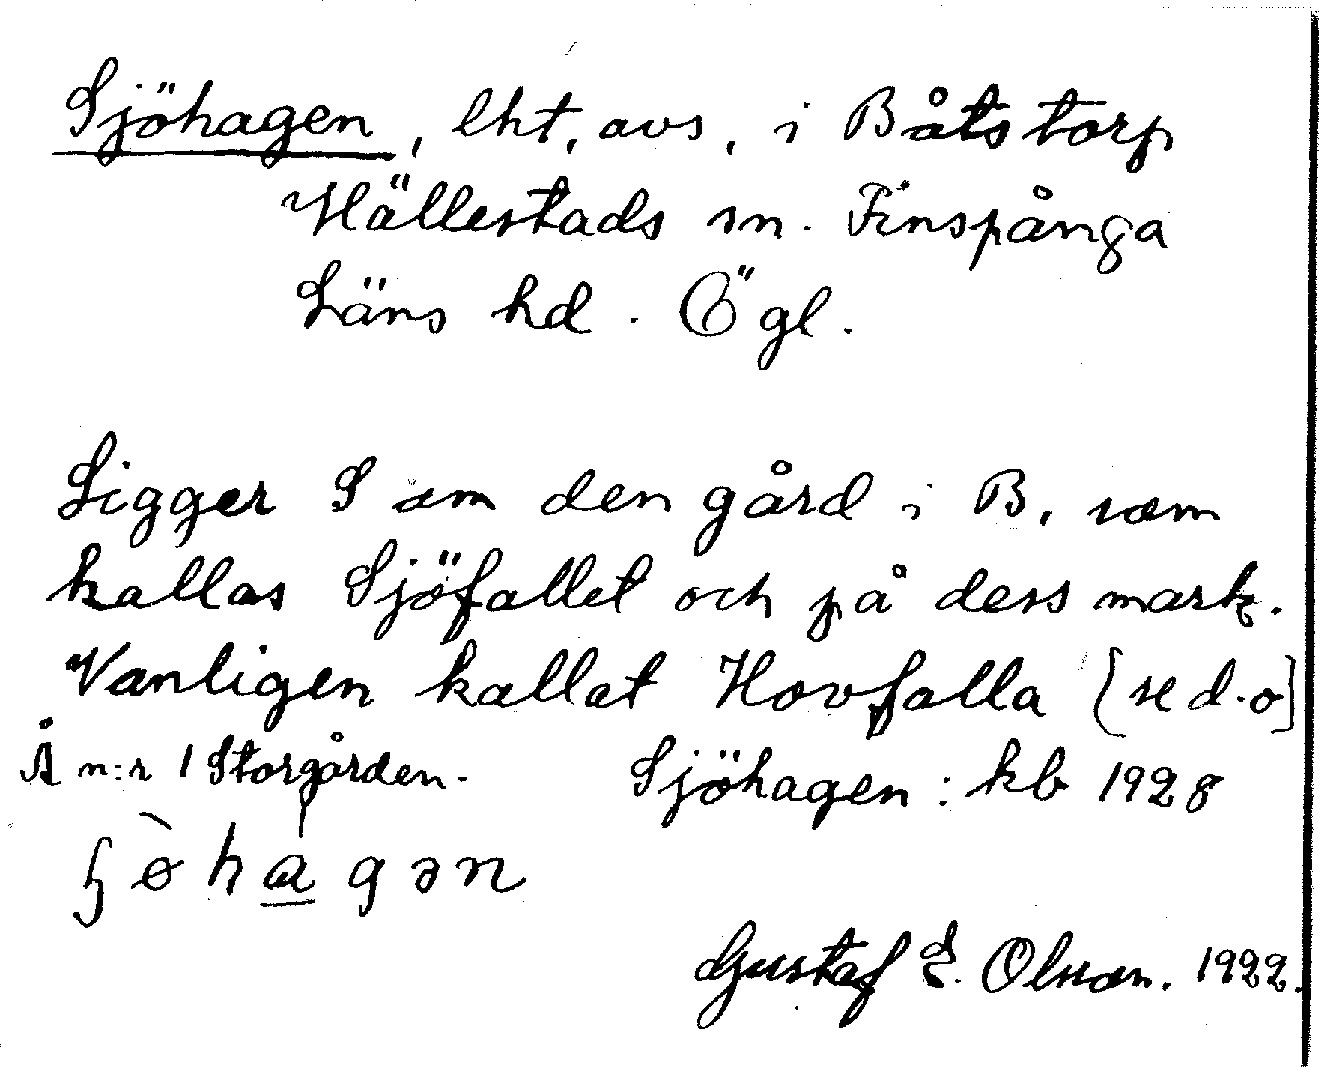 Sjöhagen, lht, avs, i Båtstorp
Hällestads sn. Finspånga
Läns hd. Ögl.
Ligger S om den gård i B, som
kallas Sjöfallet och på dess mark.
Vanligen kallat Hovfalla (se d.o)
Å n:r 1 Storgården.
Sjöhagen: kb 1928
Gustaf E. Olsson. 1922.